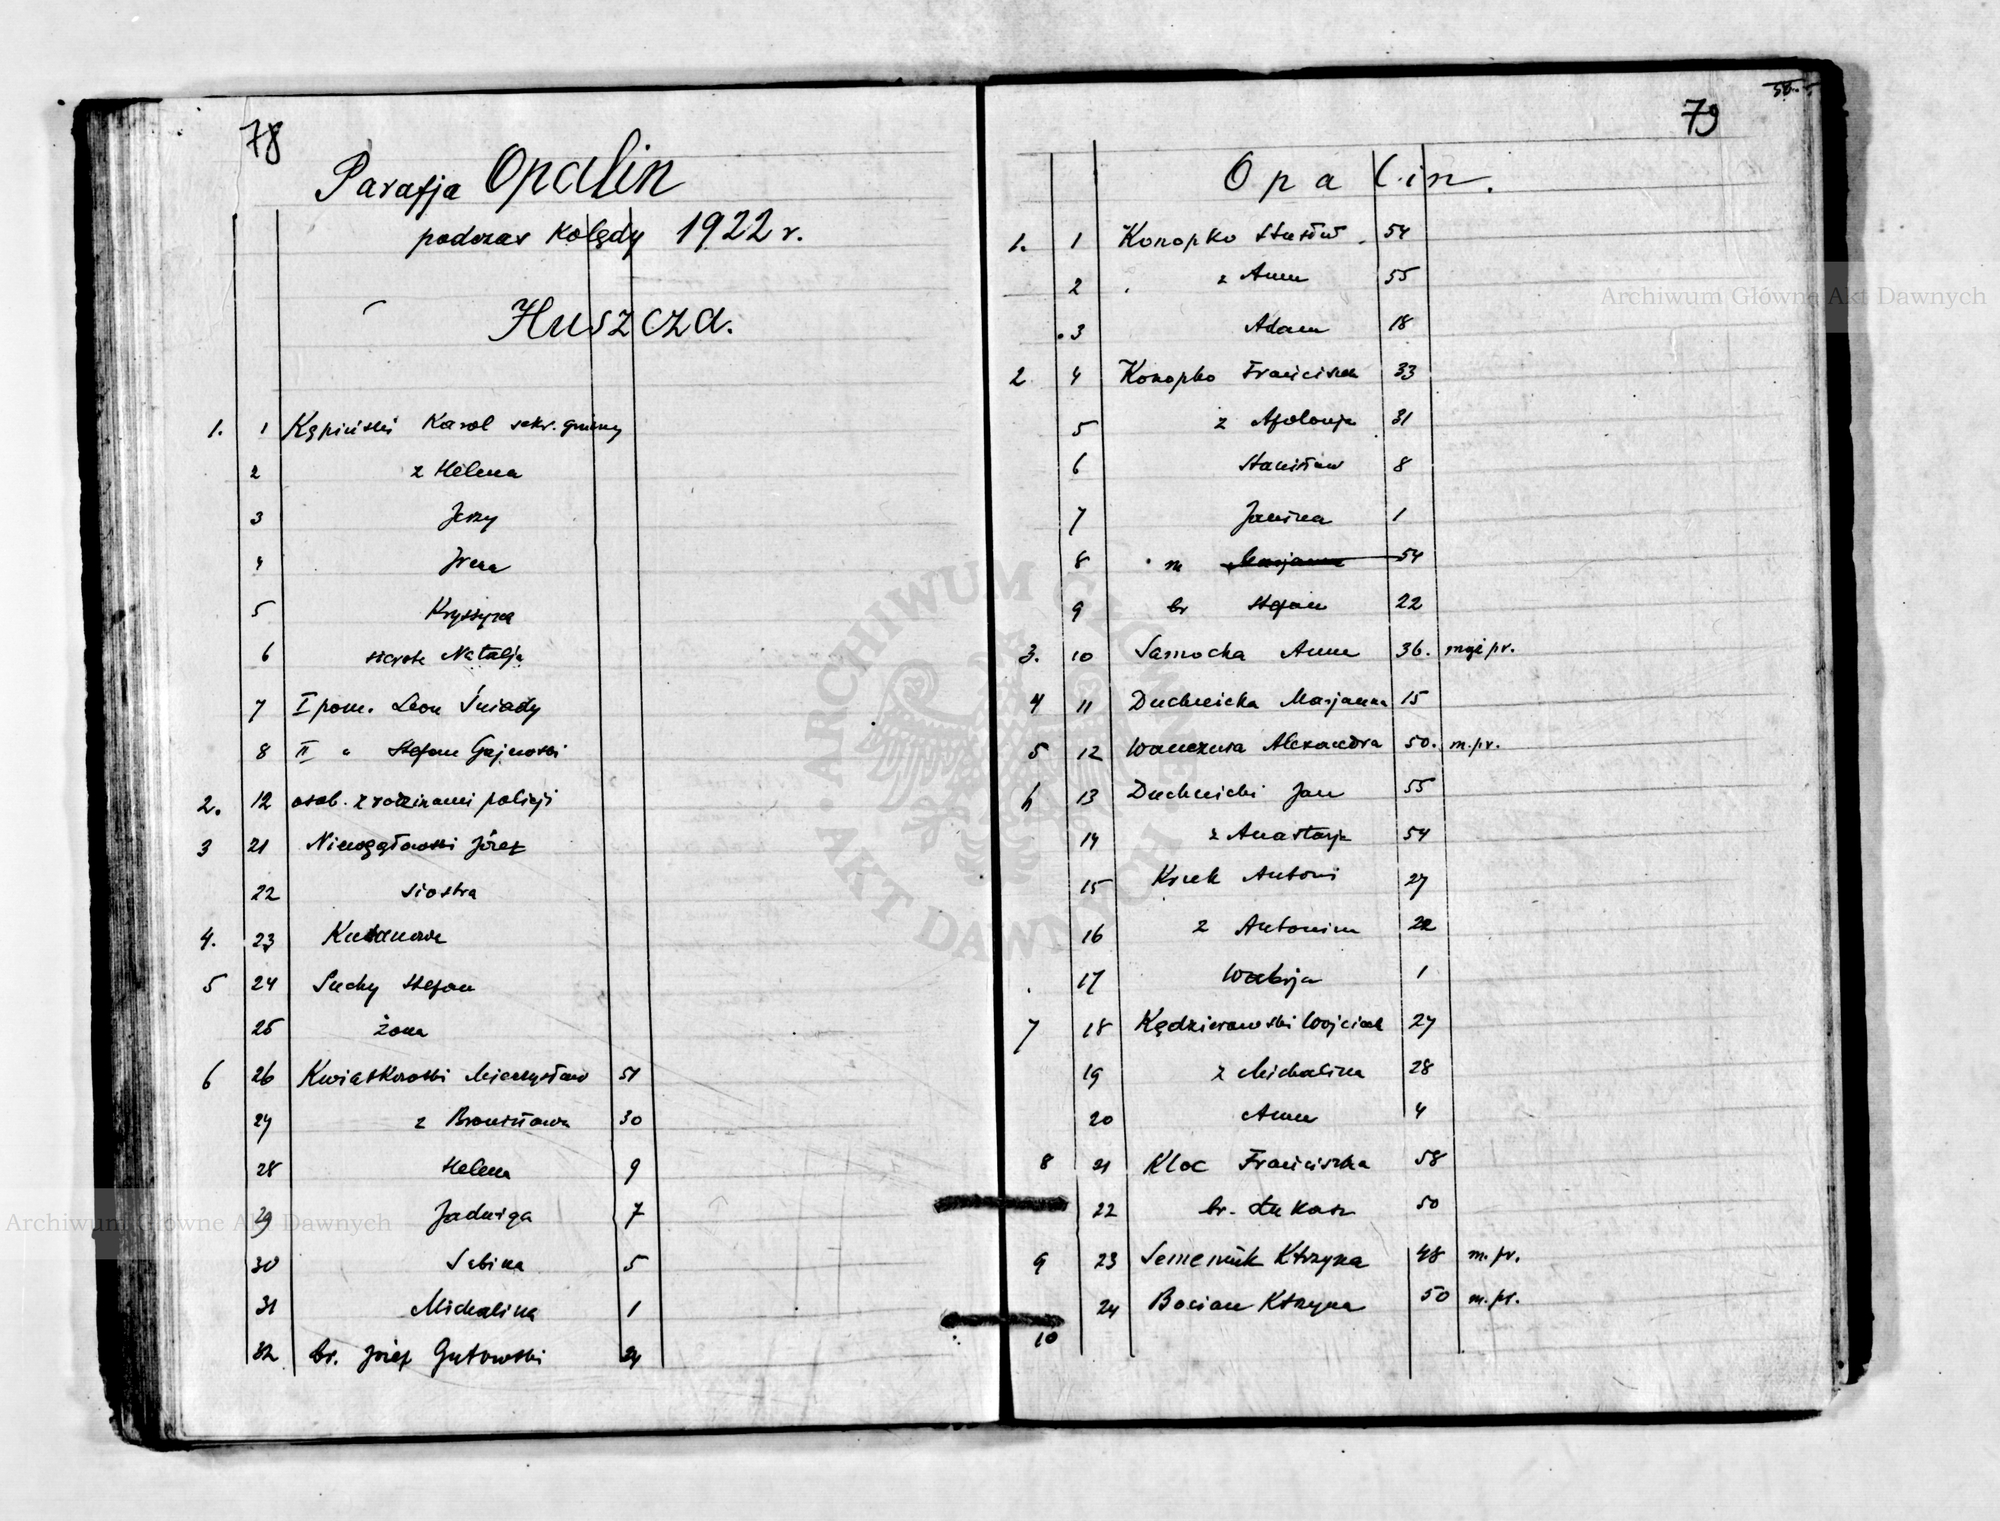 78
Parafja Opalin
podczas Kolędy 1922 r.
Huszcza.
1. 1 Kępiński Karol sekr. gminy
2 z Helena
3 Jerzy
4 Irena
5 Krystyna
6 sierota Natalja
7 I pom. Leon Śniady
8 II " Stefan Gajewski
2. 12 osób. z rodzinami policji
3 21 Niewęgłowski Józef
22 siostra
4. 23
5 24 Suchy Stefan
25 żona
6 26 Kwiatkowski Mieczysław 51
27 z Bronisława 30
28 Helena 9
29 Jadwiga 7
30 Sabina 5
31 Michalina 1
32 br. Józef Gutowski 24
79
Opalin.
1. 1 Konopko 54
2 z Anna 55
3 Adam 18
2 4 Konopko Franciszek 33
5 z Apolonja 31
6 Stanisław 8
7 Janina 1
8 m Marjanna 54
9 br Stefan 22
3. 10 Samocka Anna 36. mąż pr.
4 11 Duchnicka Marjanna 15
5 12 Alexandra 50. m. pr.
6 13 Duchnicki Jan 55
14 z Anastazja 54
15 Antoni 27
16 z Antonina 22
17 Walerja 1
7 18 Kędzierawski Wojciech 27
19 z Michalina 28
20 Anna 4
8 21 Kloc Franciszka 58
22 br. Łukasz 50
9 23 Semeniuk Ktrzyna 48 m. pr.
10 24 Bocian Ktrzyna 50 m. pr.
Archiwum Główne Akt Dawnych
Archiwum Główne Akt Dawnych
ARCHIWUM GŁÓWNE AKT DAWNYCH